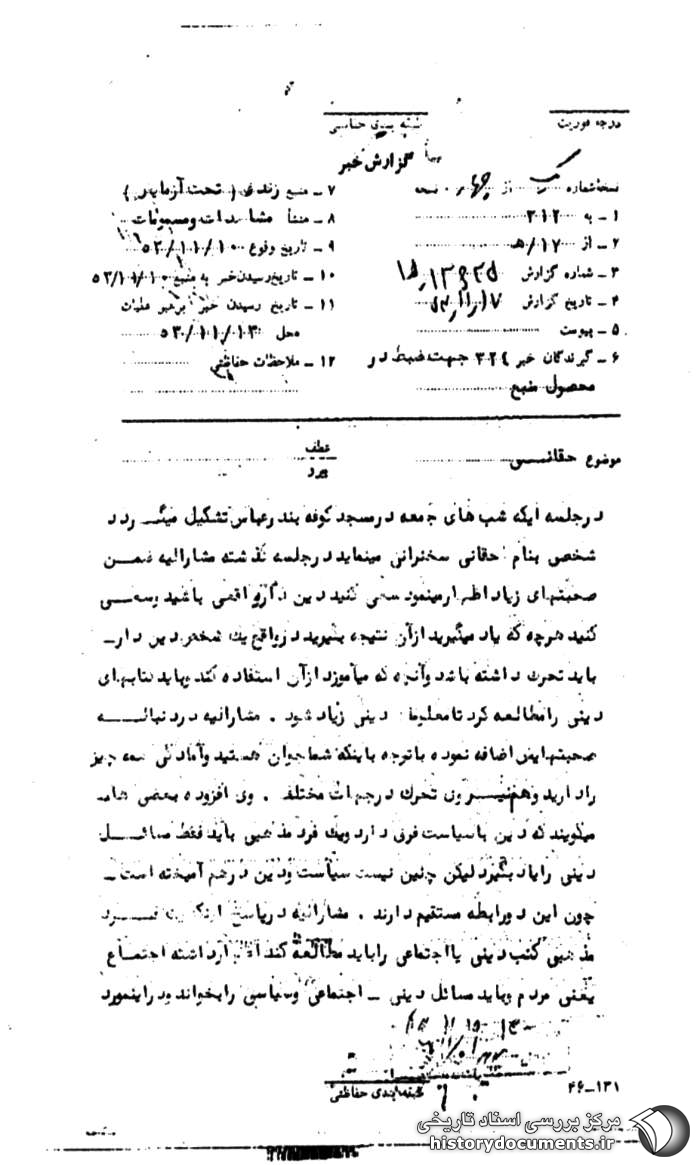 درجه فوریت
طبقه بندی حفاظتی
گزارش خبر
نسخه شماره یک از چهار نسخه
۱ ـ به ۳۱۲
۲ ـ از ۱۷/هـ
۳ ـ شماره گزارش
۴ ـ تاریخ گزارش
۵ ـ پیوست
۶ ـ گیرندگان خبر ۳۲٤ جهت ضبط در
محصول منبع
۷ ـ منبع زندی (تحت آزمایش)
۸ ـ منشأ مشاهدات و مسموعات
۹ ـ تاریخ وقوع ۵۳/۱۱/۱۰
۱۰ ـ تاریخ رسیدن خبر به منبع ۵۳/۱۱/۱۰
۱۱ ـ تاریخ رسیدن خبر برهبر عملیات
محل ۵۳/۱۱/۱۳
۱۲ ـ ملاحظات حفاظتی
موضوع حقانی
عطف
پیرو
درجلسه ایکه شب های جمعه درمسجد کوفه بندرعباس تشکیل میگردد
شخص بنام حقانی سخنرانی مینماید درجلسه گذشته مشارالیه ضمن
صحبتهای زیاد اظهارمینمود سعی کنید دین دار واقعی باشید وسعی
کنید هرچه که یاد میگیرید ازآن نتیجه بگیرید درواقع یک شخص دین دار
باید تحرک داشته باشد وآنچه که میآموزد ازآن استفاده کند وباید کتابهای
دینی رامطالعه کرد تامعلومات دینی زیاد شود . مشارالیه دردنباله
صحبتهایش اضافه نموده باتوجه باینکه شماجوان هستید وآمادگی همه چیز
رادارید وهم نیروی تحرک درجهات مختلف . وی افزوده بعضی هاهم
میگویند که دین باسیاست فرق دارد ویک فرد مذهبی باید فقط مسائل
دینی رایاد بگیرد لیکن چنین نیست سیاست ودین درهم آمیخته است
چون این دورابطه مستقیم دارند . مشارالیه درپاسخ اینکه یک فرد
مذهبی کتب دینی یااجتماعی راباید مطالعه کند اظهارداشته اجتماع
یعنی مردم وباید مسائل دینی ـ اجتماعی وسیاسی رابخواند ودراینمورد
طبقه بندی حفاظتی
۴۶ـ۱۳۱
مرکز بررسی اسناد تاریخی
historydocuments.ir